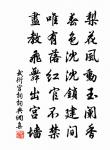 梨花風動玉闌香
春色沈沈鎖建章
唯有落紅官不禁
盡教飛舞出宮牆
武衍宮詞詞典網書